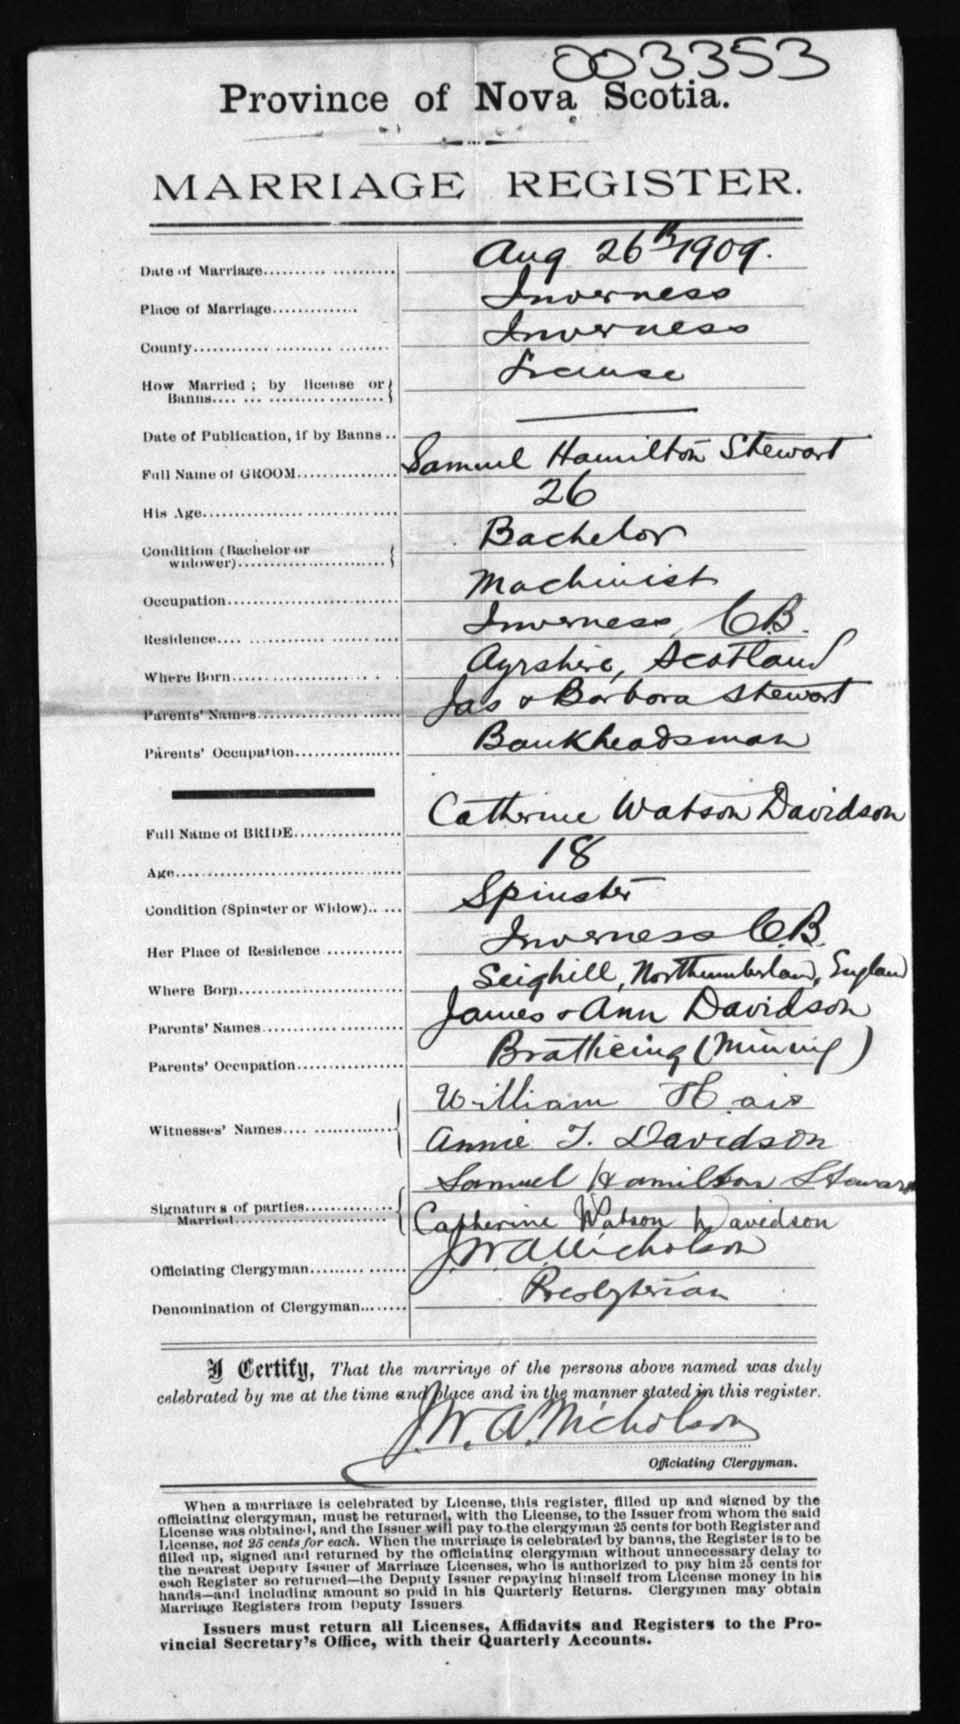 003353
Province of Nova Scotia.
MARRIAGE REGISTER.
Date of Marriage.......... Aug 26th 1909.
Place of Marriage............. Inverness
County.......... Inverness
How Married; by license or Banns.......... License
Date of Publication, if by Banns.. ———
Full Name of GROOM.......... Samuel Hamilton Stewart
His Age.......... 26
Condition (Bachelor or widower).......... Bachelor
Occupation.......... Machinist
Residence.......... Inverness, C.B.
Where Born.......... Ayrshire, Scotland
Parents' Names.......... Jas & Barbora Stewart
Parents' Occupation.......... Bankheadsman
Full Name of BRIDE.......... Catherine Watson Davidson
Age.......... 18
Condition (Spinster or Widow)..... Spinster
Her Place of Residence.......... Inverness C.B.
Where Born.......... Seighill, Northumberland, England
Parents' Names.......... James & Ann Davidson
Parents' Occupation.......... Bratticing (Mining)
Witnesses' Names.......... William
Annie T. Davidson
Signatures of parties Married.......... Samuel Hamilton Stewart
Catherine Watson Davidson
Officiating Clergyman.......... J.W.A. Nicholson
Denomination of Clergyman........ Presbyterian
I Certify, That the marriage of the persons above named was duly
celebrated by me at the time and place and in the manner stated in this register.
J.W.A. Nicholson
Officiating Clergyman.
When a marriage is celebrated by License, this register, filled up and signed by the
officiating clergyman, must be returned, with the License, to the Issuer from whom the said
License was obtained, and the Issuer will pay to the clergyman 25 cents for both Register and
License, not 25 cents for each. When the marriage is celebrated by banns, the Register is to be
filled up, signed and returned by the officiating clergyman without unnecessary delay to
the nearest Deputy Issuer of Marriage Licenses, who is authorized to pay him 25 cents for
each Register so returned—the Deputy Issuer repaying himself from License money in his
hands—and including amount so paid in his Quarterly Returns. Clergymen may obtain
Marriage Registers from Deputy Issuers
Issuers must return all Licenses, Affidavits and Registers to the Pro-
vincial Secretary's Office, with their Quarterly Accounts.